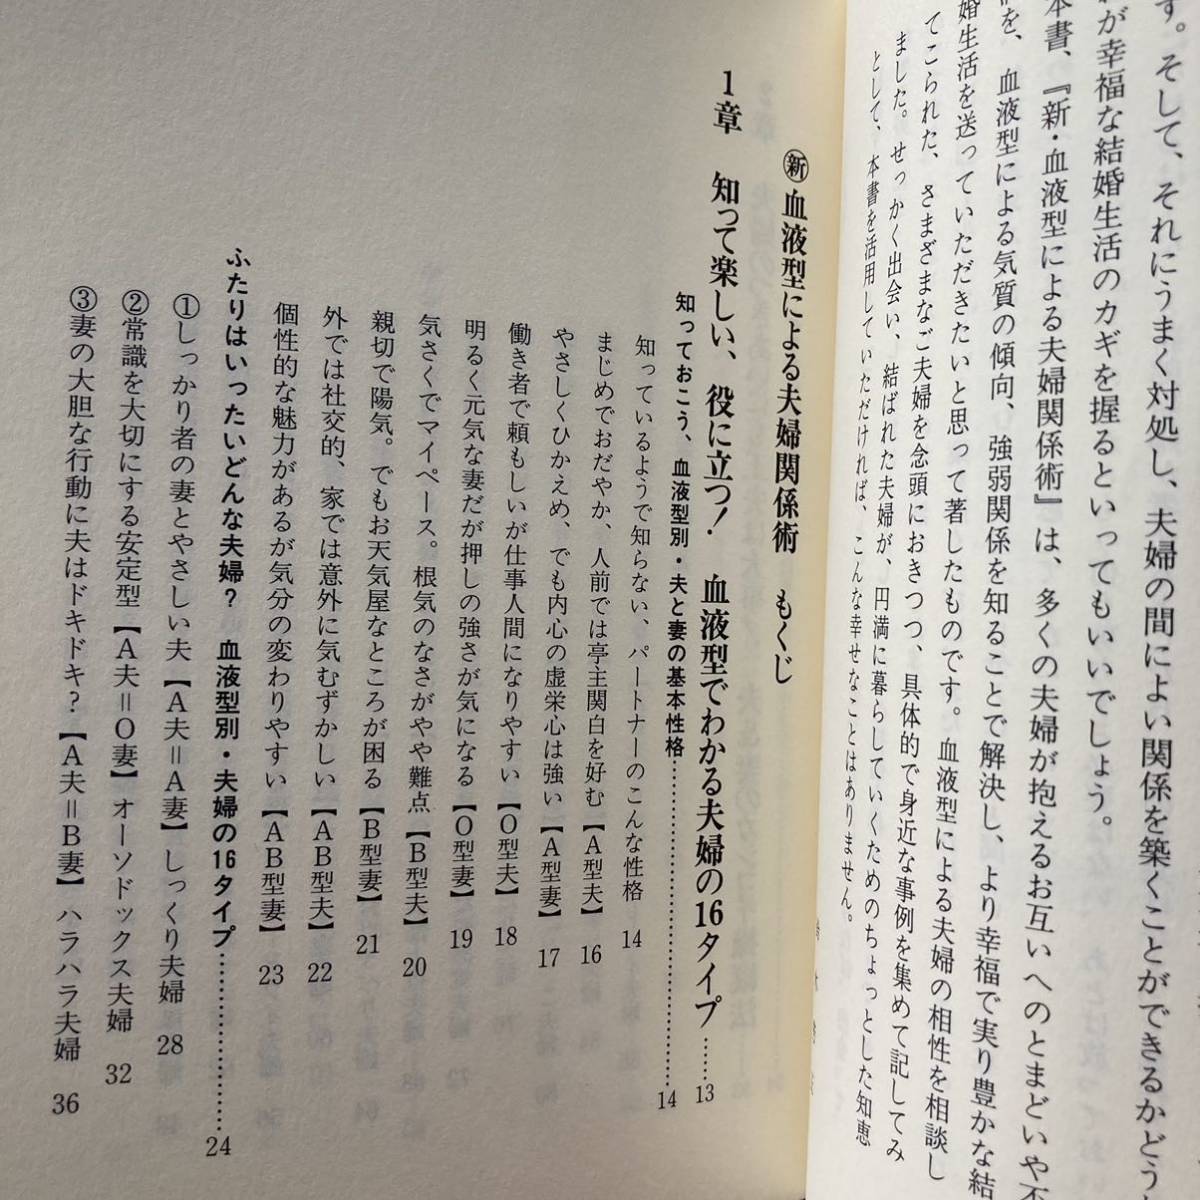 す。そして、それにうまく対処し、夫婦の間によい関係を築くことができるかどう
が幸福な結婚生活のカギを握るといってもいいでしょう。
本書、『新・血液型による夫婦関係術』は、多くの夫婦が抱えるお互いへのとまどいや不
を、血液型による気質の傾向、強弱関係を知ることで解決し、より幸福で実り豊かな結
婚生活を送っていただきたいと思って著したものです。血液型による夫婦の相性を相談し
てこられた、さまざまなご夫婦を念頭におきつつ、具体的で身近な事例を集めて記してみ
ました。せっかく出会い、結ばれた夫婦が、円満に暮らしていくためのちょっとした知恵
として、本書を活用していただければ、こんな幸せなことはありません。
新 血液型による夫婦関係術 もくじ
1章 知って楽しい、役に立つ! 血液型でわかる夫婦の16タイプ……13
知っておこう、血液型別・夫と妻の基本性格……………………14
知っているようで知らない、パートナーのこんな性格 14
まじめでおだやか、人前では亭主関白を好む【A型夫】 16
やさしくひかえめ、でも内心の虚栄心は強い【A型妻】 17
働き者で頼もしいが仕事人間になりやすい【O型夫】 18
明るく元気な妻だが押しの強さが気になる【O型妻】 19
気さくでマイペース。根気のなさがやや難点【B型夫】 20
親切で陽気。でもお天気屋なところが困る【B型妻】 21
外では社交的、家では意外に気むずかしい【AB型夫】 22
個性的な魅力があるが気分の変わりやすい【AB型妻】 23
ふたりはいったいどんな夫婦? 血液型別・夫婦の16タイプ……………24
①しっかり者の妻とやさしい夫【A夫=A妻】しっくり夫婦 28
②常識を大切にする安定型【A夫=O妻】オーソドックス夫婦 32
③妻の大胆な行動に夫はドキドキ?【A夫=B妻】ハラハラ夫婦 36